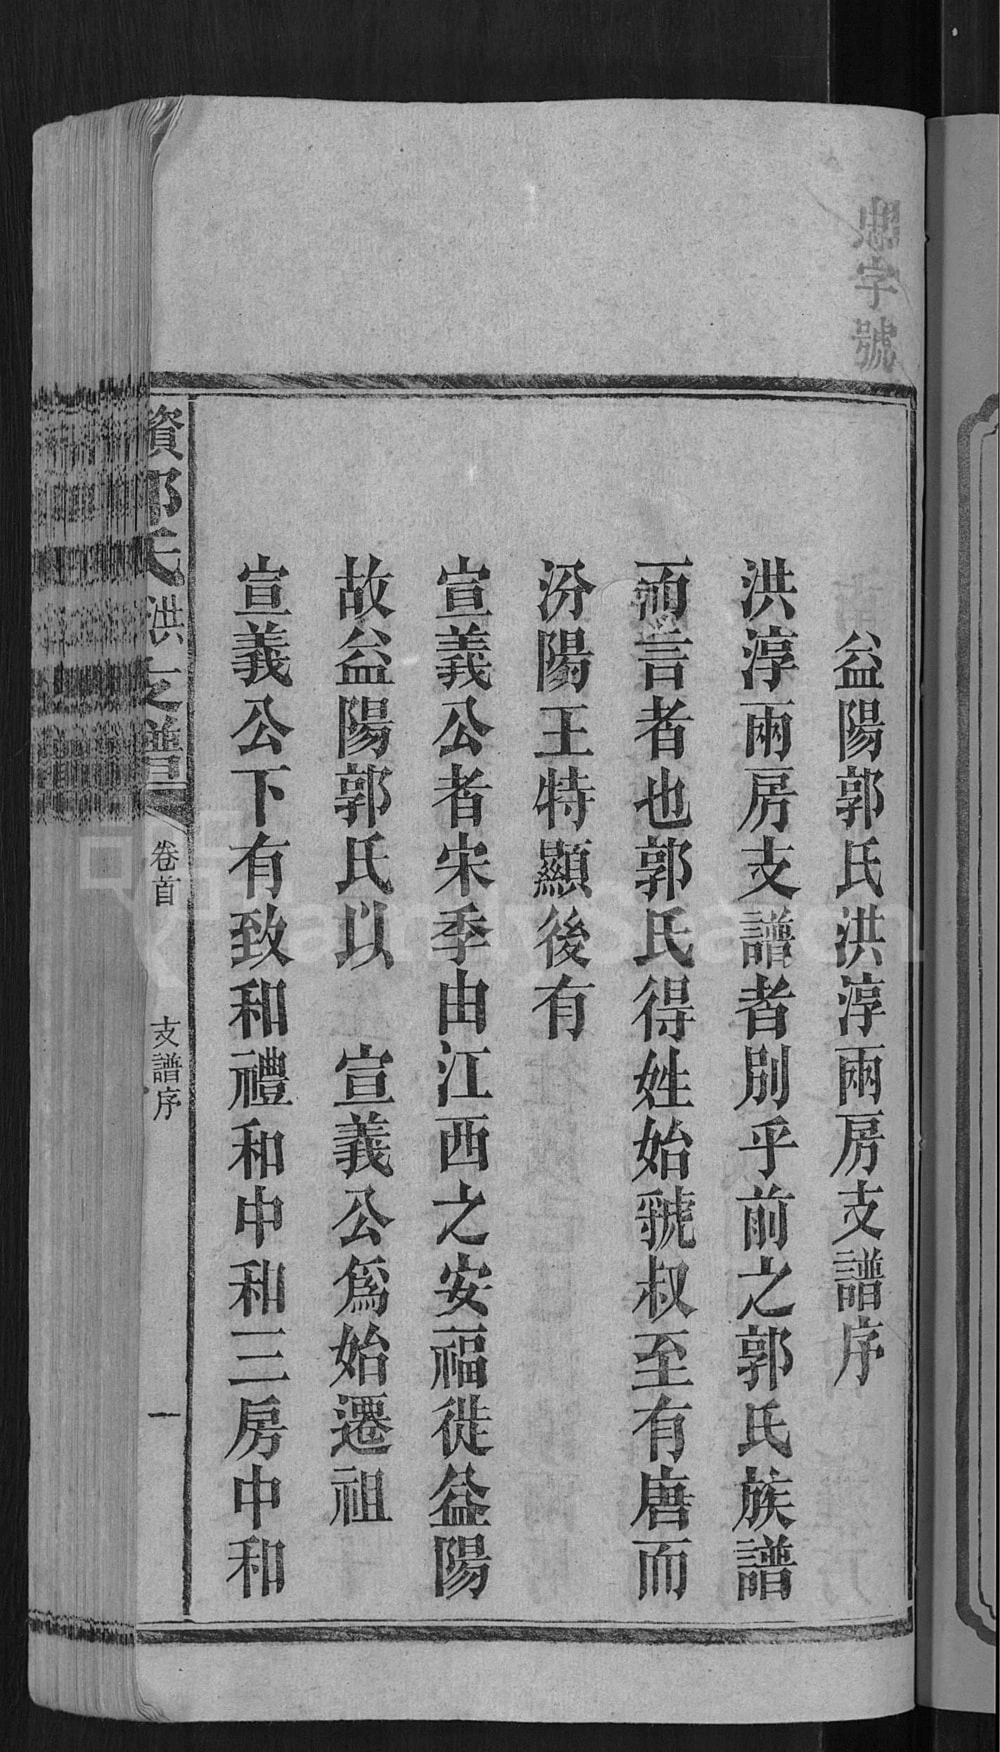 忠字號
益陽郭氏洪淳兩房支譜序
洪淳兩房支譜者別乎前之郭氏族譜
而言者也郭氏得姓始虢叔至有唐而
汾陽王特顯後有
宣義公者宋季由江西之安福徙益陽
故益陽郭氏以　宣義公爲始遷祖
宣義公下有致和禮和中和三房中和
資郭氏洪支譜
卷首
支譜序
一